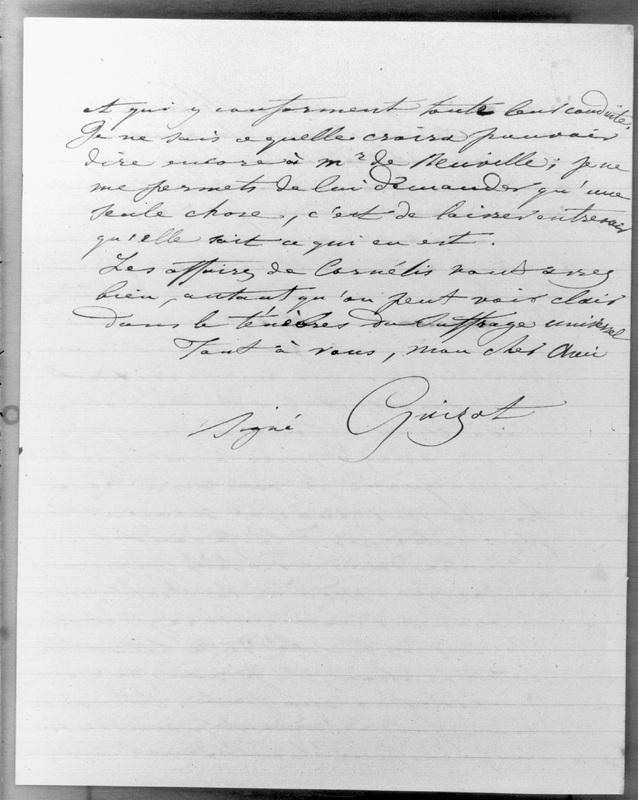 et qui y conforment toute leur conduite.
Je ne sais ce quelle croira pouvoir
dire encore à Mr de Neuville ; je ne
me permets de lui demander qu'une
seule chose, c'est de laisser entrevoir
qu'elle sait ce qui en est.
Les affaires de Cornélis vont assez
bien, autant qu'on peut voir clair
dans le ténèbres du suffrage universel
Tout à vous, mon cher Ami
Signé Guizot